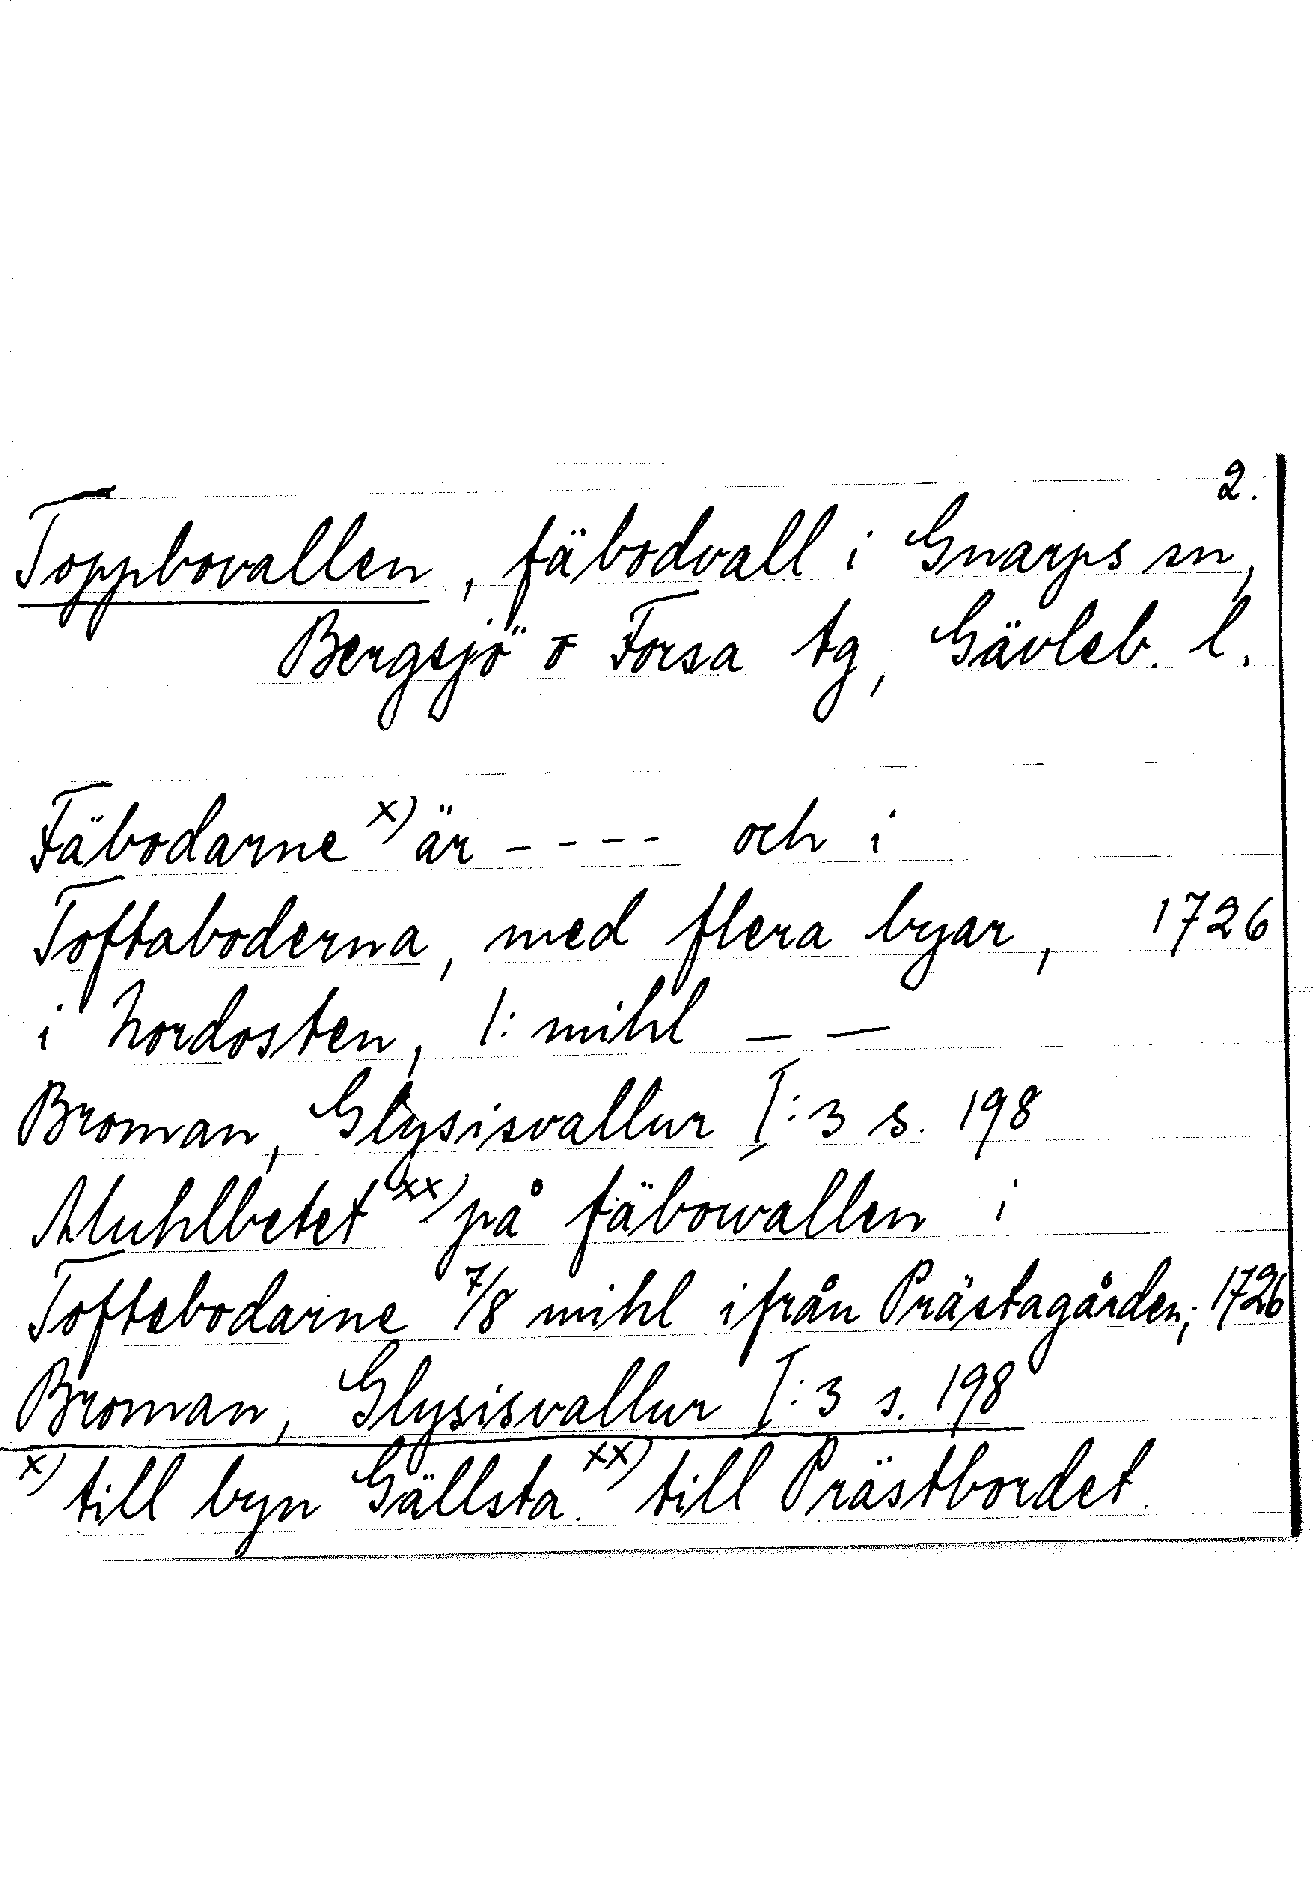 2.
Toppbovallen, fäbodvall i Gnarps sn,
Bergsjö o Forsa tg, Gävleb. l.
Fäbodarne x) är - - - - och i
Toftaboderna, med flera byar, 1726
i Nordosten, 1: mihl — —
Broman, Glysisvallur I:3 s. 198
Muhlbetet xx) på fäbowallen i
Toftebodarne 7/8 mihl ifrån Prästagården; 1726
Broman, Glysisvallur I:3 s. 198
x) till byn Gällsta. xx) till Prästbordet.